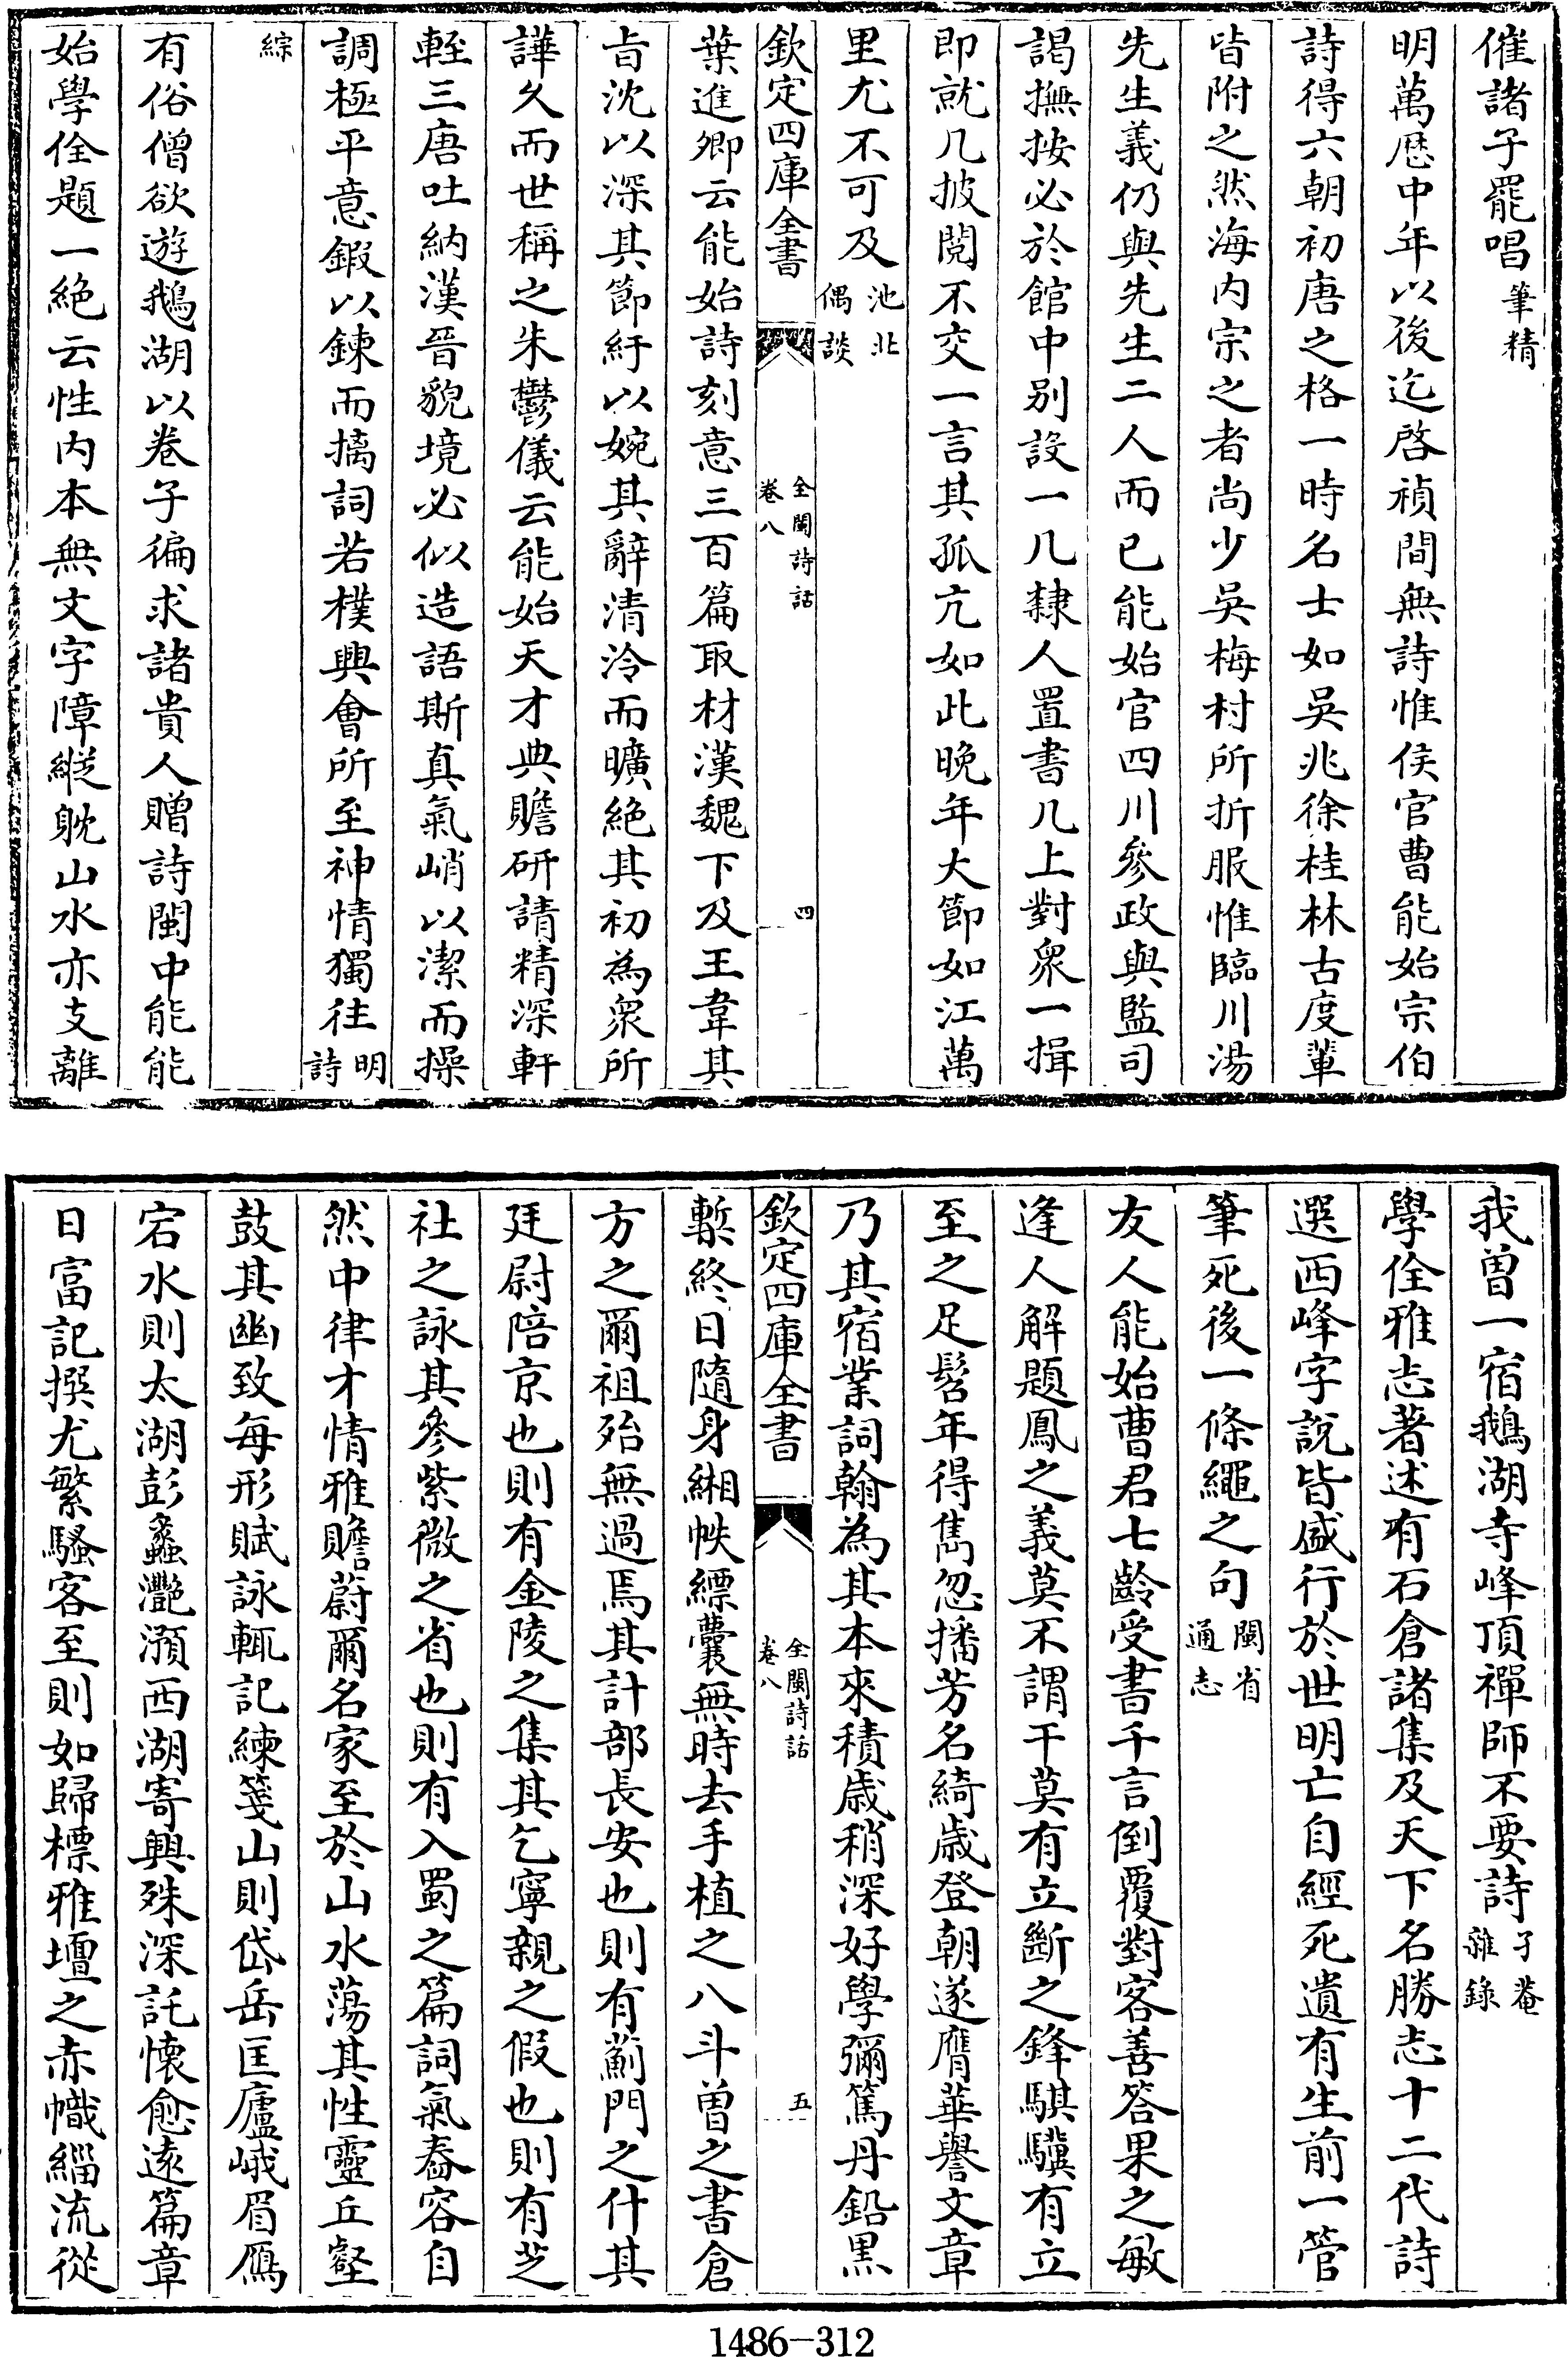 催諸子罷唱筆精
明萬厯中年以後迄啓禎間無詩惟侯官曹能始宗伯
詩得六朝初唐之格一時名士如吳兆徐桂林古度輩
皆附之然海内宗之者尚少吳梅村所折服惟臨川湯
先生義仍與先生二人而已能始官四川參政與監司
謁撫按必於館中别設一几隸人置書几上對衆一揖
即就几披閱不交一言其孤亢如此晚年大節如江萬
里尤不可及池北偶談
欽定四庫全書
全閩詩話
卷八
四
葉進卿云能始詩刻意三百篇取材漢魏下及王韋其
㫖沈以深其節紆以婉其辭清泠而曠絶其初為衆所
譁久而世稱之朱鬱儀云能始天才典贍研請精深軒
輊三唐吐納漢晉貌境必似造語斯真氣峭以潔而操
調極平意鍜以鍊而摛詞若樸興會所至神情獨往明詩
綜
有俗僧欲遊鵝湖以卷子徧求諸貴人贈詩閩中能能
始學佺題一絶云性内本無文字障縱躭山水亦支離
我曾一宿鵝湖寺峰頂禪師不要詩孑菴雜錄
學佺雅志著述有石倉諸集及天下名勝志十二代詩
選西峰字説皆盛行於世明亡自經死遺有生前一管
筆死後一條繩之句閩省通志
友人能始曹君七齡受書千言倒覆對客善答果之敏
逢人解題鳳之義莫不謂干莫有立斷之鋒騏驥有立
至之足髫年得雋忽播芳名綺歲登朝遂膺華譽文章
乃其宿業詞翰為其本來積歲稍深好學彌篤丹鉛黒
欽定四庫全書
全閩詩話
卷八
五
槧終日隨身緗帙縹囊無時去手植之八斗曽之書倉
方之爾祖殆無過焉其計部長安也則有薊門之什其
廷尉陪京也則有金陵之集其乞寧親之假也則有芝
社之詠其參紫微之省也則有入蜀之篇詞氣舂容自
然中律才情雅贍蔚爾名家至於山水蕩其性靈丘壑
鼓其幽致每形賦詠輒記練箋山則岱岳匡廬峨眉鴈
宕水則太湖彭蠡灧澦西湖寄興殊深託懷愈遠篇章
日富記撰尤繁騷客至則如歸標雅壇之赤幟緇流從
1486-312